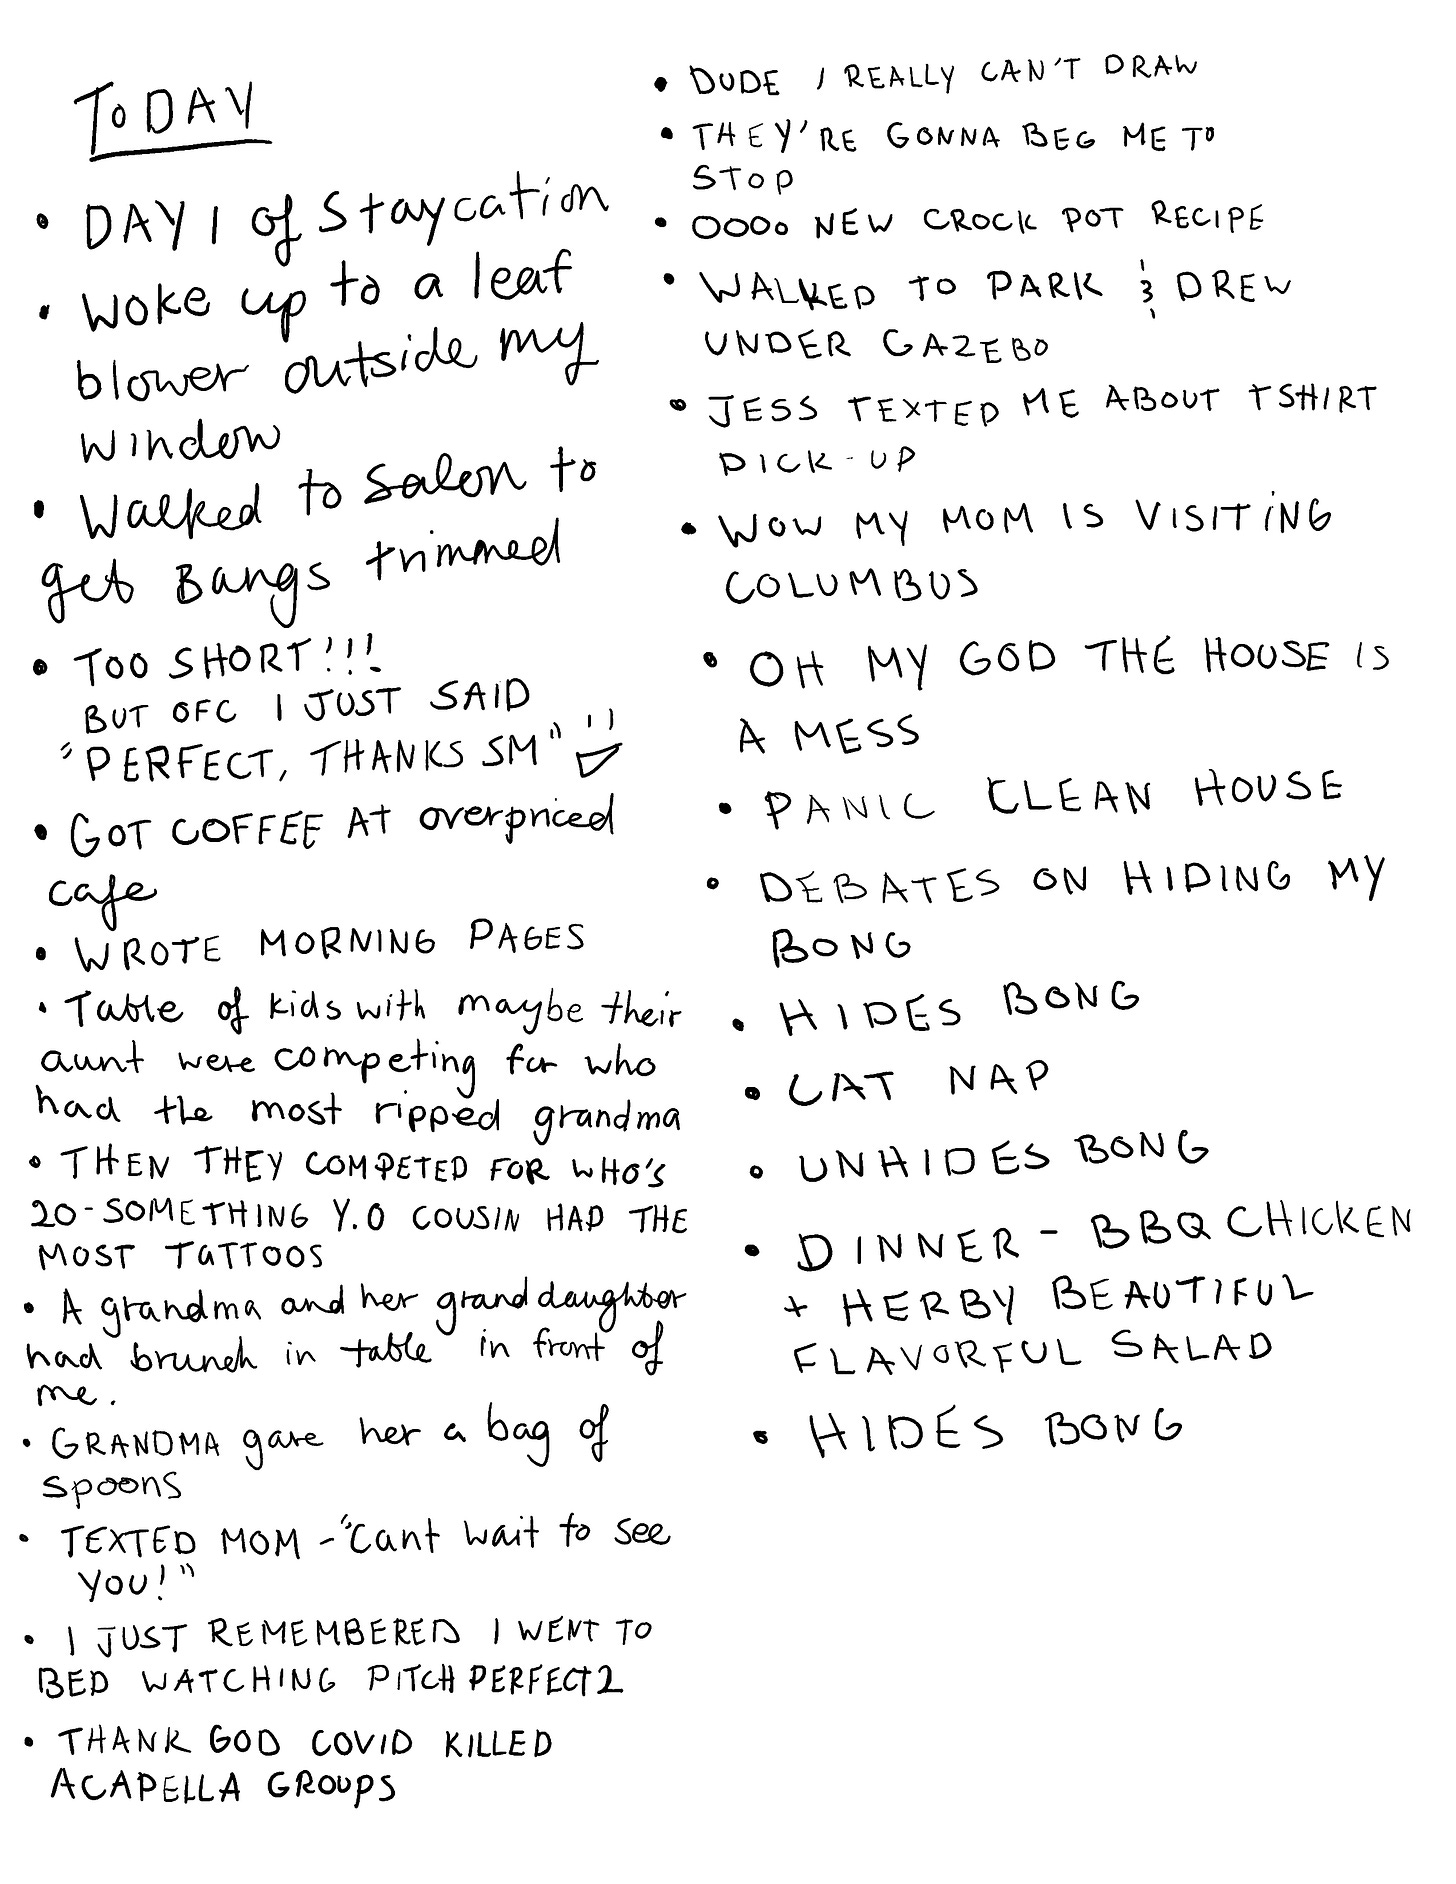 TODAY
• DAY 1 of Staycation
• Woke up to a leaf
blower outside my
window
• Walked to salon to
get Bangs trimmed
• TOO SHORT!!!
BUT OFC I JUST SAID
"PERFECT, THANKS SM"
• GOT COFFEE AT overpriced
cafe
• WROTE MORNING PAGES
• Table of kids with maybe their
aunt were competing for who
had the most ripped grandma
• THEN THEY COMPETED FOR WHO'S
20-SOMETHING Y.O COUSIN HAD THE
MOST TATTOOS
• A grandma and her granddaughter
had brunch in table in front of
me.
• GRANDMA gave her a bag of
spoons
• TEXTED MOM - "Cant wait to see
YOU!"
• I JUST REMEMBERED I WENT TO
BED WATCHING PITCH PERFECT 2
• THANK GOD COVID KILLED
ACAPELLA GROUPS
• DUDE I REALLY CAN'T DRAW
• THEY'RE GONNA BEG ME TO
STOP
• OOOO NEW CROCK POT RECIPE
• WALKED TO PARK & DREW
UNDER GAZEBO
• JESS TEXTED ME ABOUT TSHIRT
PICK-UP
• WOW MY MOM IS VISITING
COLUMBUS
• OH MY GOD THE HOUSE IS
A MESS
• PANIC CLEAN HOUSE
• DEBATES ON HIDING MY
BONG
• HIDES BONG
• CAT NAP
• UNHIDES BONG
• DINNER - BBQ CHICKEN
+ HERBY BEAUTIFUL
FLAVORFUL SALAD
• HIDES BONG